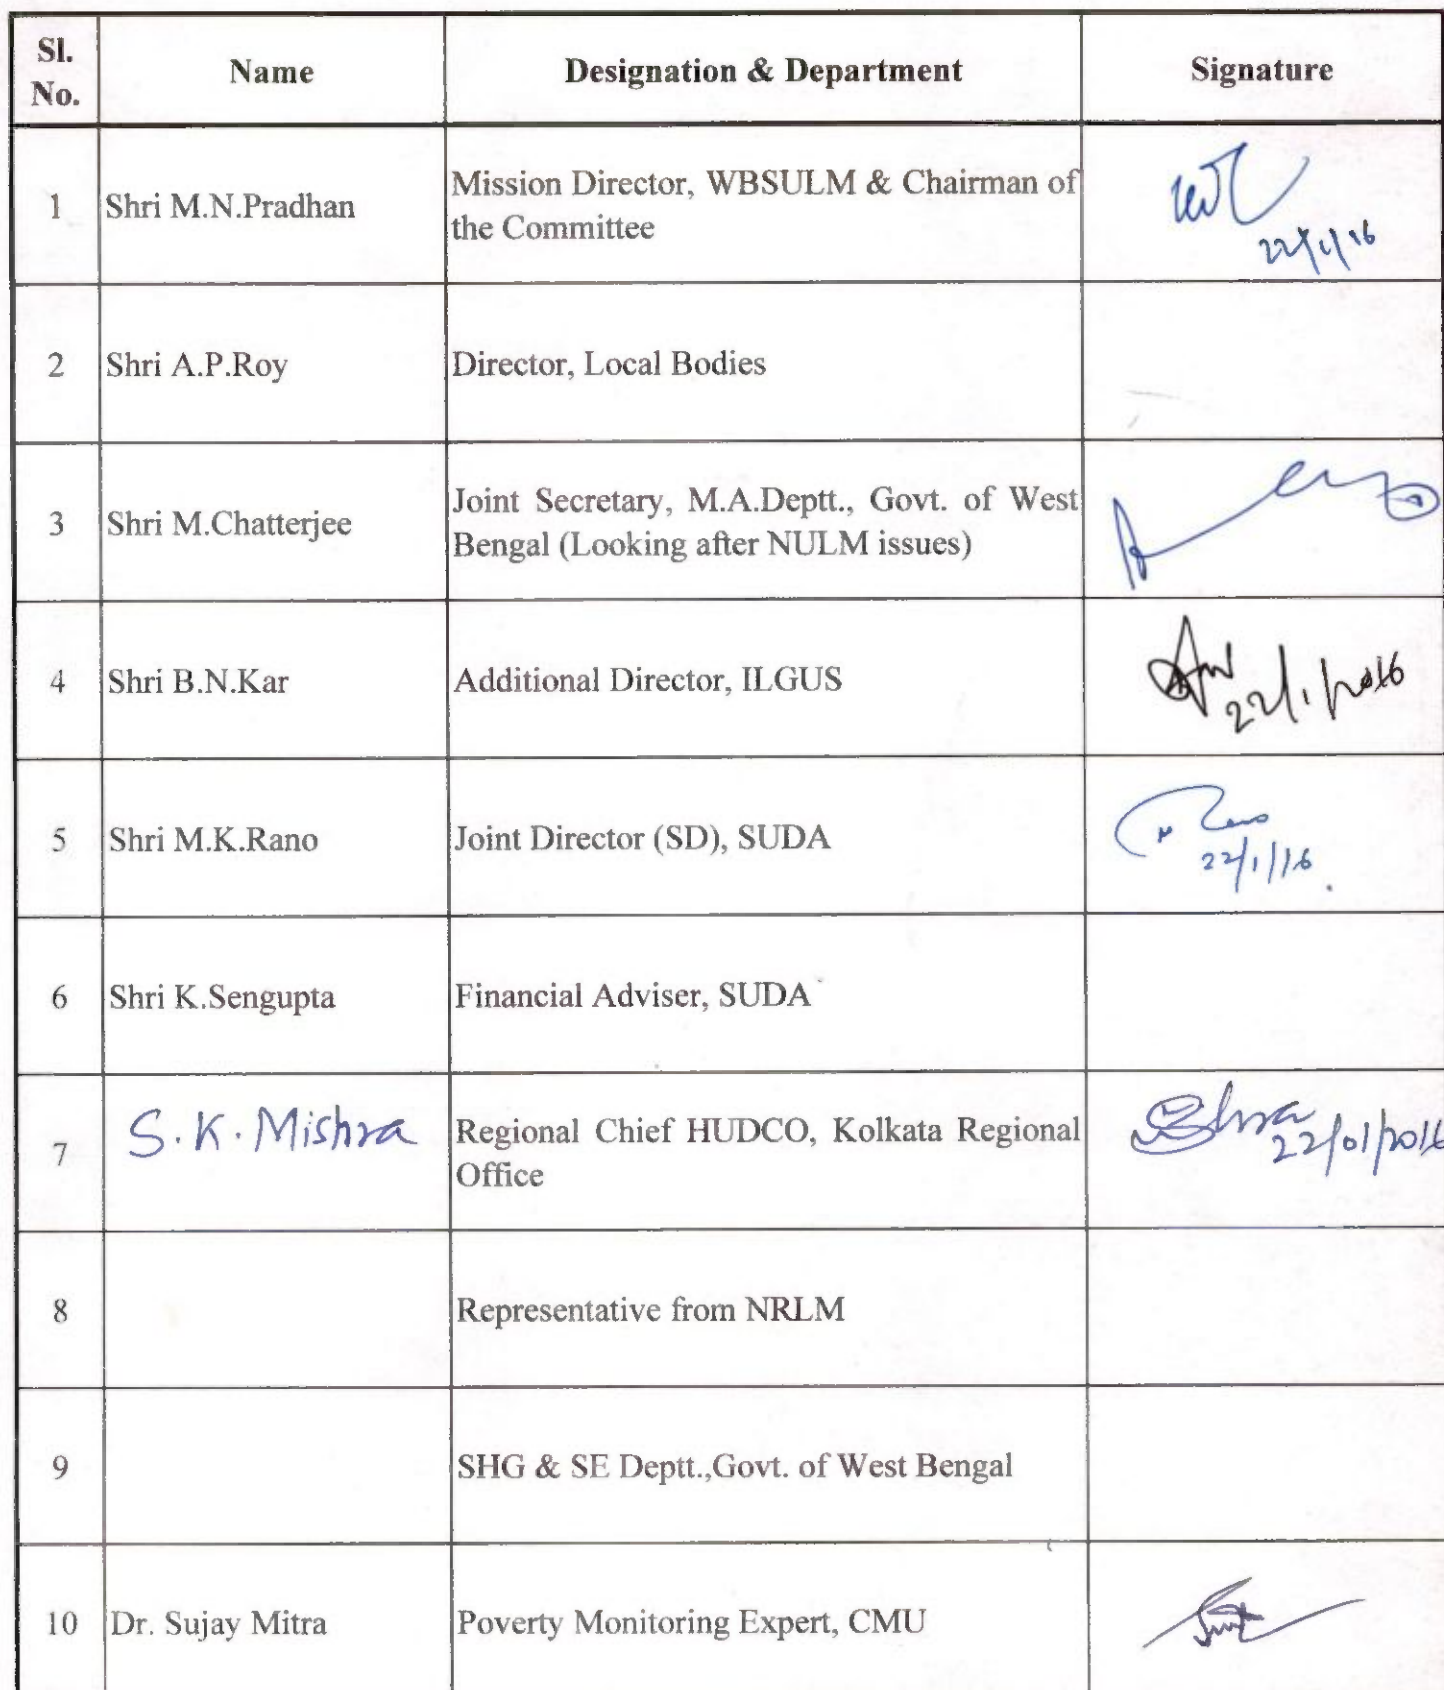 Sl. No. Name Designation & Department Signature
1 Shri M.N.Pradhan Mission Director, WBSULM & Chairman of
the Committee
22/1/16
2 Shri A.P.Roy Director, Local Bodies
3 Shri M.Chatterjee Joint Secretary, M.A.Deptt., Govt. of West
Bengal (Looking after NULM issues)
4 Shri B.N.Kar Additional Director, ILGUS
22/1/2016
5 Shri M.K.Rano Joint Director (SD), SUDA
22/1/16
6 Shri K.Sengupta Financial Adviser, SUDA
7 S.K.Mishra Regional Chief HUDCO, Kolkata Regional
Office
22/01/2016
8 Representative from NRLM
9 SHG & SE Deptt.,Govt. of West Bengal
10 Dr. Sujay Mitra Poverty Monitoring Expert, CMU